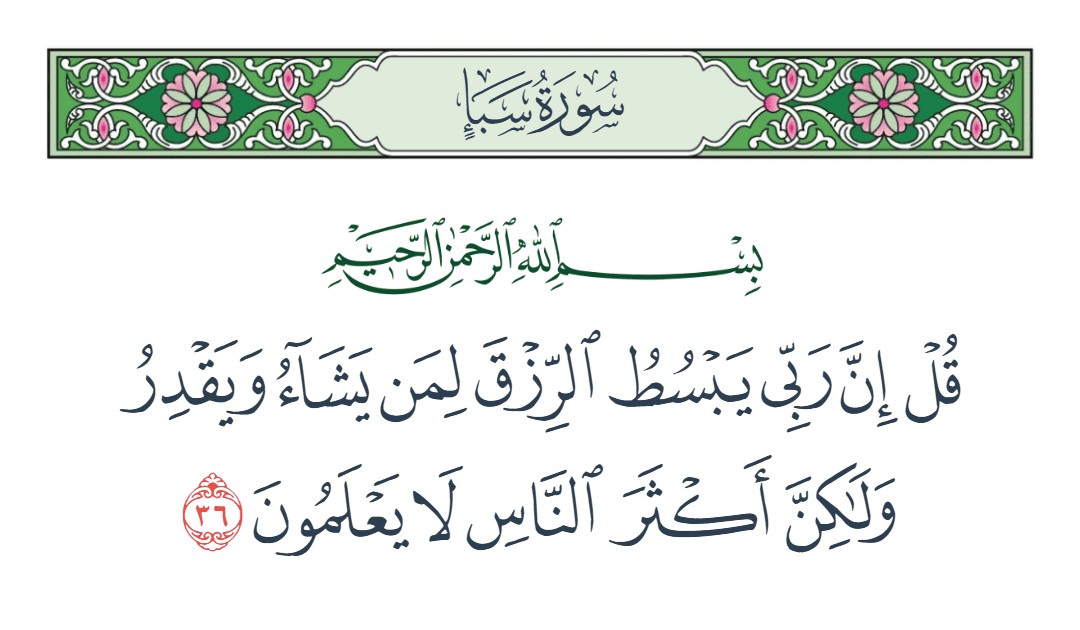 سُورَةُ سَبَإٍ
بِسْمِ ٱللَّهِ ٱلرَّحْمَٰنِ ٱلرَّحِيمِ
قُلْ إِنَّ رَبِّى يَبْسُطُ ٱلرِّزْقَ لِمَن يَشَآءُ وَيَقْدِرُ
وَلَٰكِنَّ أَكْثَرَ ٱلنَّاسِ لَا يَعْلَمُونَ ٣٦